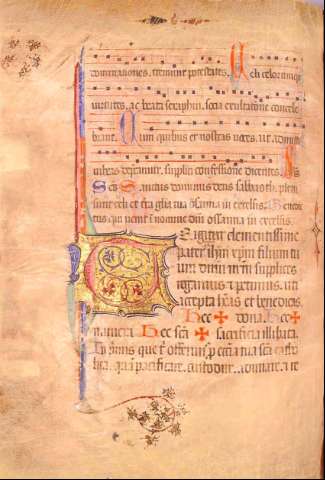 dominationes. tremunt potestates. Celi celorumque
virtutes. ac beata seraphin. socia exultatione concele
brant. Cum quibus et nostras voces. ut admitti
iubeas deprecamur. supplici confessione dicentes. S
Scs. dominus deus sabaoth. pleni
sunt celi et terra gloria tua osanna in excelsis. Benedic
tus qui venit in nomine dni osanna in excelsis.
Te igitur clementissime
pater ihm xpm filium tu
um dnm nrm supplices
rogamus et petimus. uti
accepta habeas et benedicas.
Hec ✠ dona. Hec ✠
munera. Hec sca ✠ sacrificia illibata.
In primis que tibi offerimus p ecclia tua sca catho
lica. qua pacificare. custodire. adunare. et re